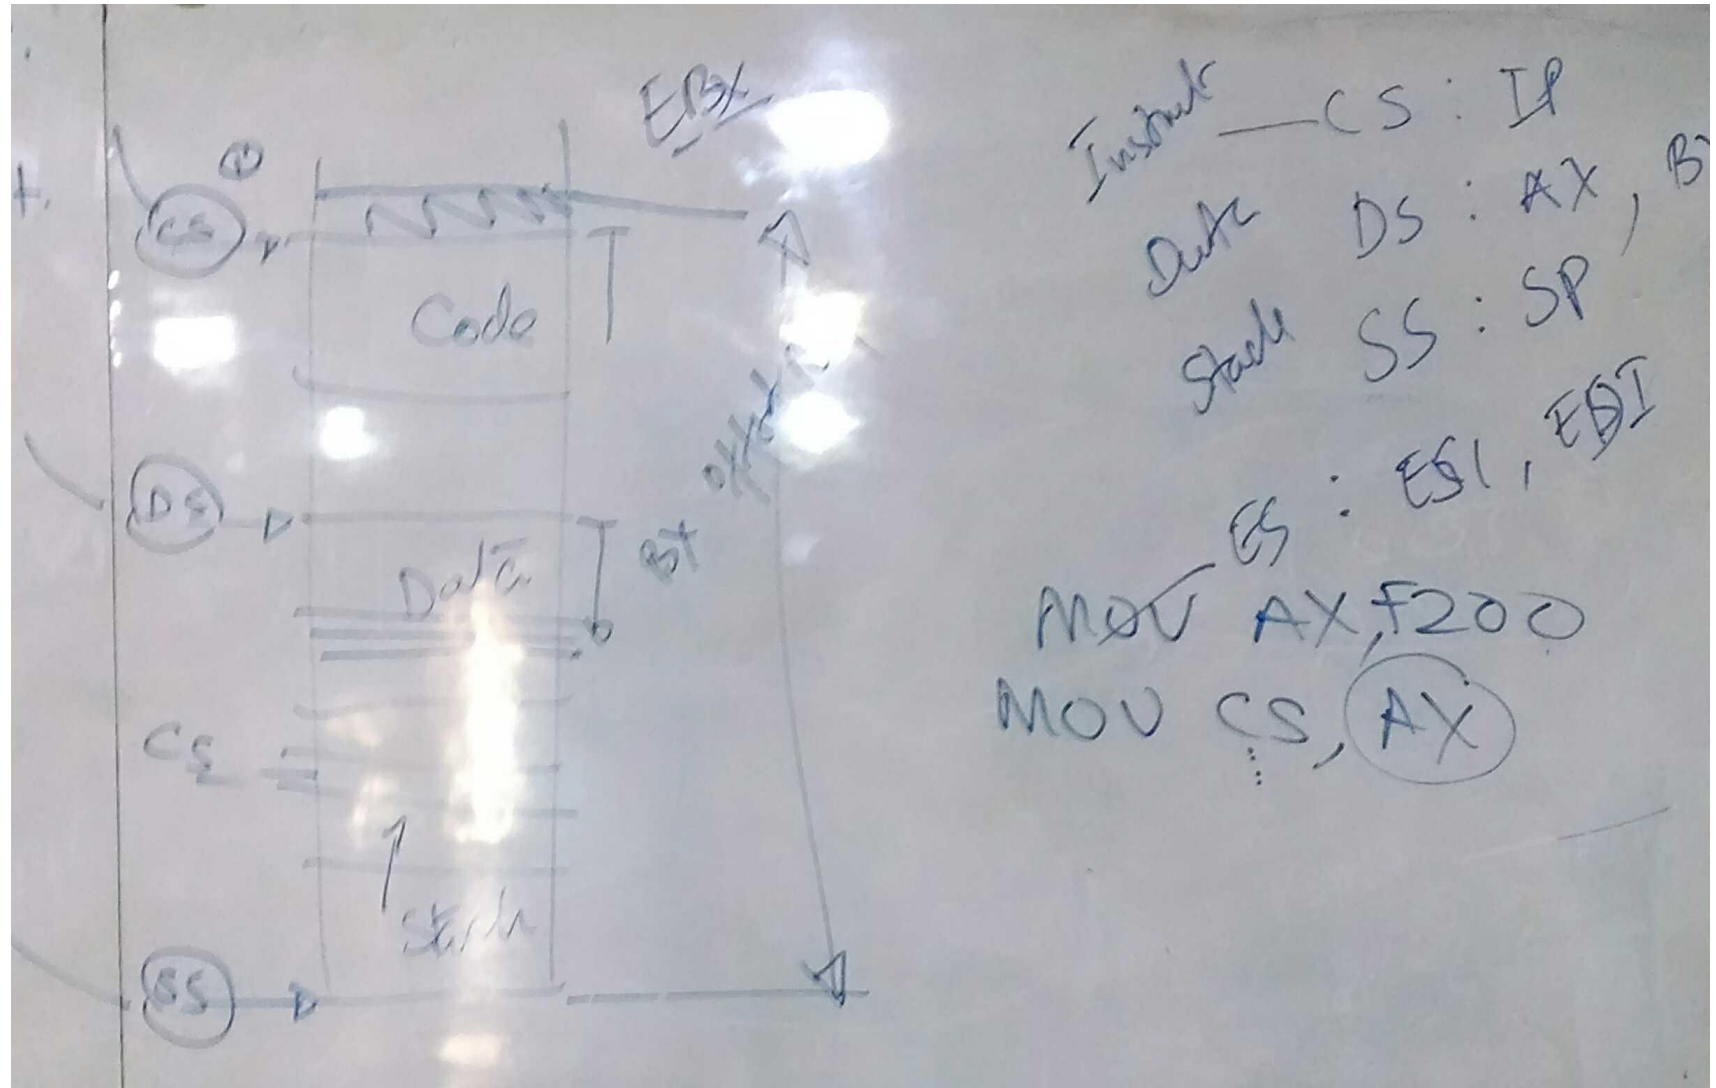 EBX
CS
Code
DS
Data
BX offset
CS
Stack
SS
Instruct — CS : IP
Data DS : AX, B
Stack SS : SP
ES : ESI, EDI
MOV AX, F200
MOV CS, AX